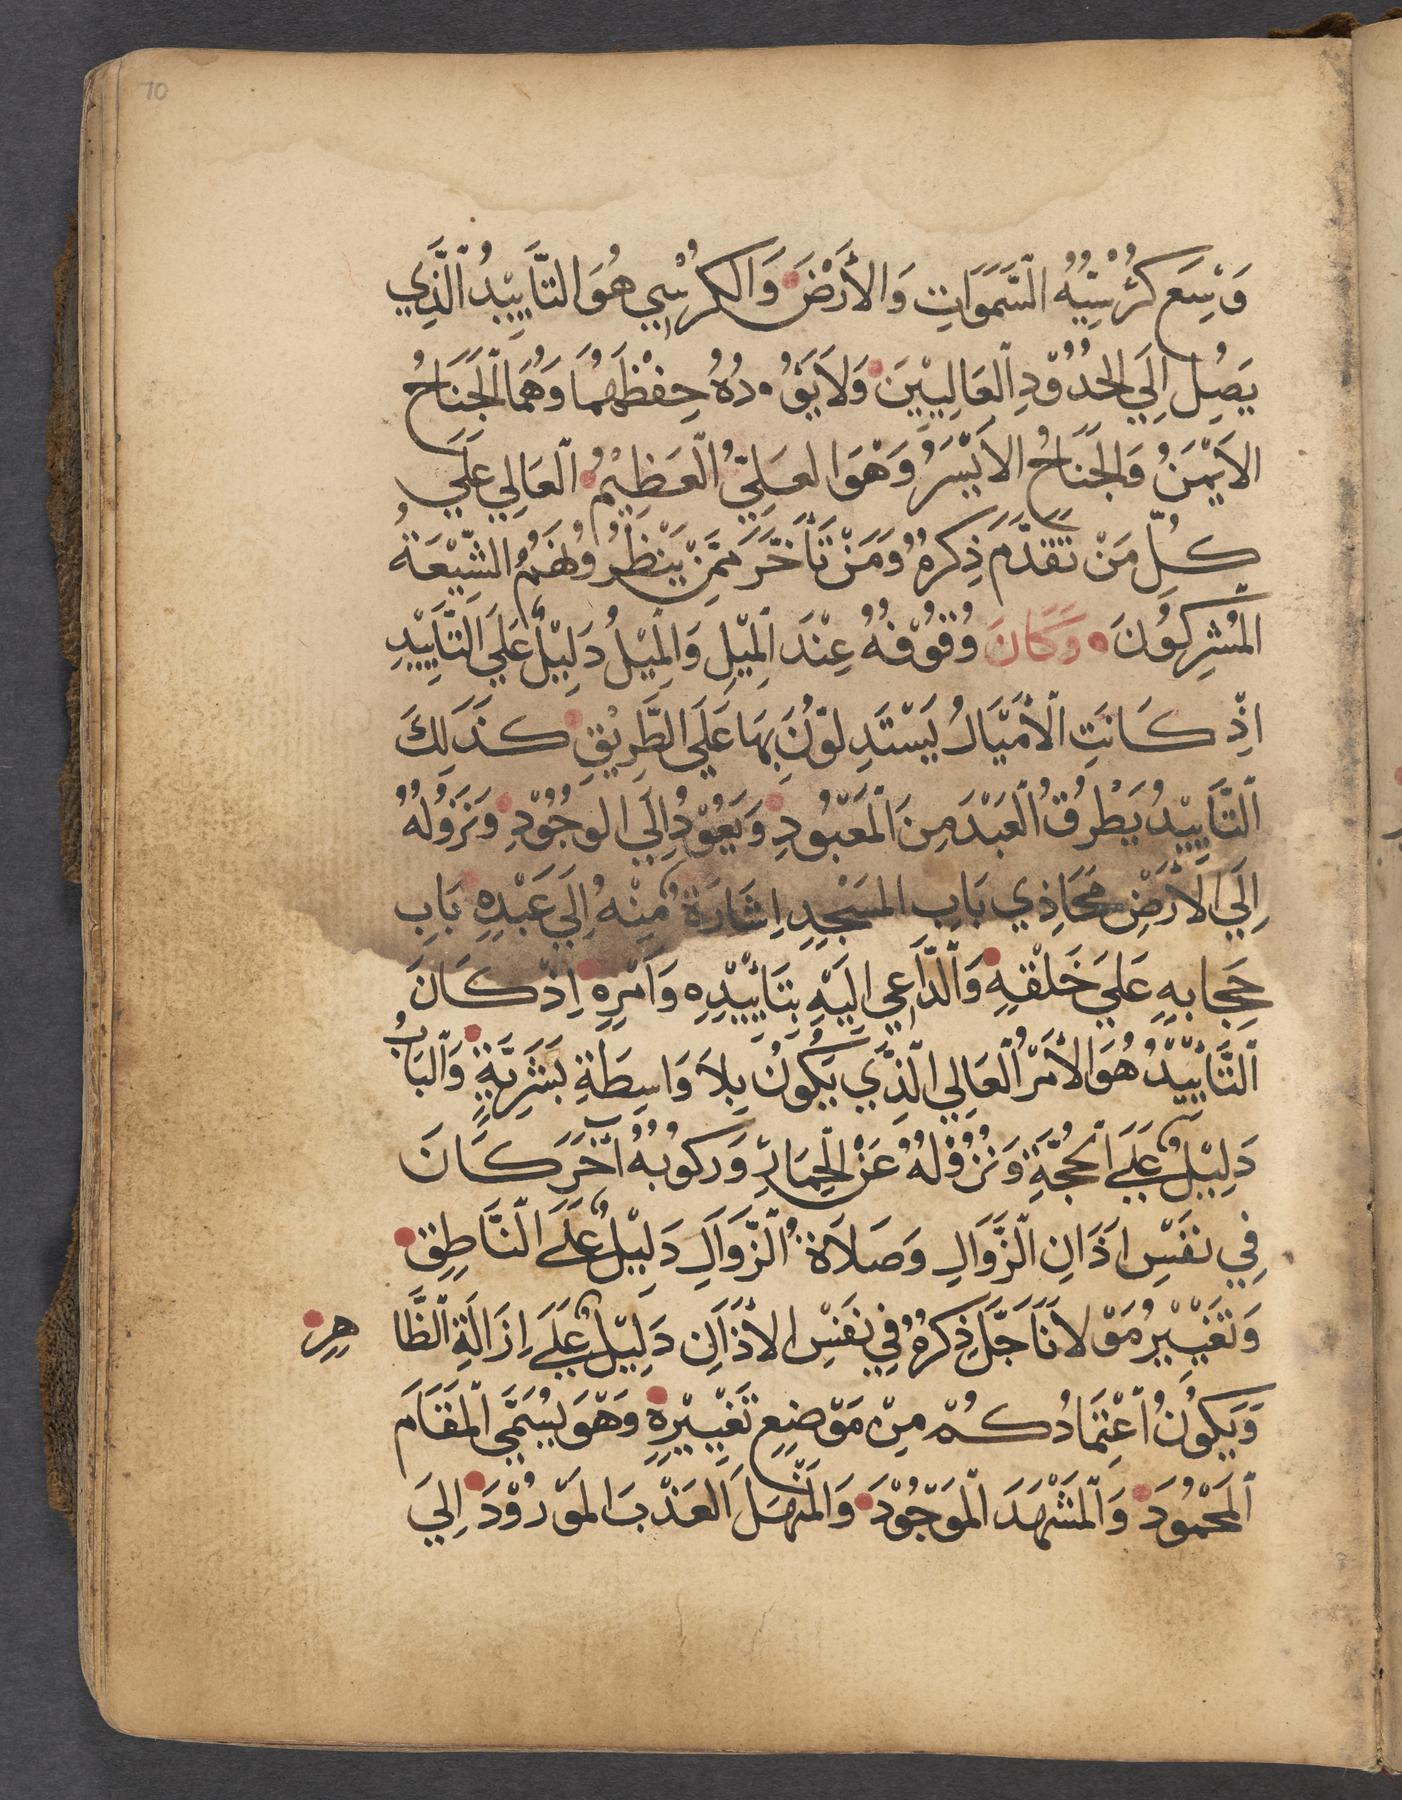 10
وَسِعَ كُرْسِيُّهُ السَّمَوَاتِ وَالأَرْضَ وَالكُرْسِي هُوَ التَّأَيِيْدُ الَّذِي
يَصِلُ اِلَي الحُدُوْدِ العَالِيِيْنَ وَلاَ يَؤُدُهُ حِفْظَهُمَا وَهُمَا الجَنَاحُ
الاَيْمَنُ وَالجَنَاحُ الاَيْسَرُ وَهْوَ العَلِيُّ العَظِيْمُ العَالِي عَلَي
كُلِّ مَنْ تَقَدَّمَ ذِكْرُهُ وَمَنْ تَأَخَّرَ مِمَّنْ يَنْظُرُ وُهُمُ الشِّيْعَةُ
المُشْرِكُوُنَ وَكَانَ وُقُوْفُهُ عِنْدَ المِيْلِ وَالمِيْلُ دَلِيْلٌ عَلَي التَّأَيِيْدِ
اِذْ كَانَتِ الأَمْيَالُ يَسْتَدِلوّنَ بِهَا عَلَي الطَّرِيْقِ كَذَلِكَ
التَّأَيِيْدُ يَطْرُقُ العَبْدَ مِنَ المَعْبُودِ وَيَعُوْدُ اِلَي الوُجُوْدِ وَنَزُوْلُهُ
اِلَي الأَرْضِ مَحَاذِي بَابِ المَسْجِدِ اِشَارَةٌ مِنْهُ اِلَي عَبْدِهِ بَابِ
حِجَابِهِ عَلَي خَلْقِهِ وَالدَّاعِي اِلَيْهِ بِتَأَيِيْدِهِ وَاَمْرِهِ اِذْ كَانَ
التَّأَيِيْدُ هُوَ الأَمْرُ العَالِي الَّذِي يَكُوُنُ بِلاَ وَاسِطَةٍ بَشَرِيَّةٍ وَالبَابُ
دَلِيْلٌ عَلَي الحُجَّةِ وَنُزُوْلُهُ عَنِ الحِمَارِ وَرُكُوبُهُ آخَرَ كَانَ
فِي نَفْسِ اَذَانِ الزَّوَالِ وَصَلاَةُ الزَّوَالِ دَلِيْلٌ عَلَي النَّاطِقِ
وَتَغْيِيْرُ مَوْلاَنَا جَلَّ ذِكْرُهُ فِي نَفْسِ الأَذَانِ دَلِيْلٌ عَلَي اِزَالَةِ الظَّا هِرِ
وَيَكُوُنُ اعْتِمَادُكُمْ مِنْ مَوْضِعِ تَغْيِيْرِهِ وَهْوَ يُسَمَّي المَقَامَ
المَحْمُودَ وَالمَشْهَدَ المَوْجُوْدَ وَالمَنْهَلَ العَذْبَ المَوْرُوْدَ اِلَي